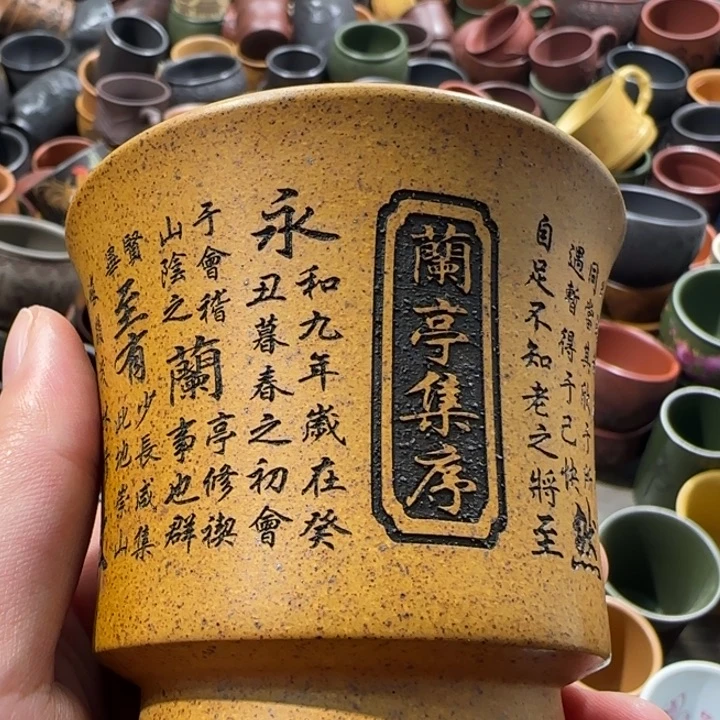 當其欣于所
遇暫得于己快然
自足不知老之將至
蘭亭集序
永
和九年歲在癸
丑暮春之初會
于會稽
山陰之
蘭
亭修禊
事也群
賢
畢
至
少長咸集
有
此地崇山